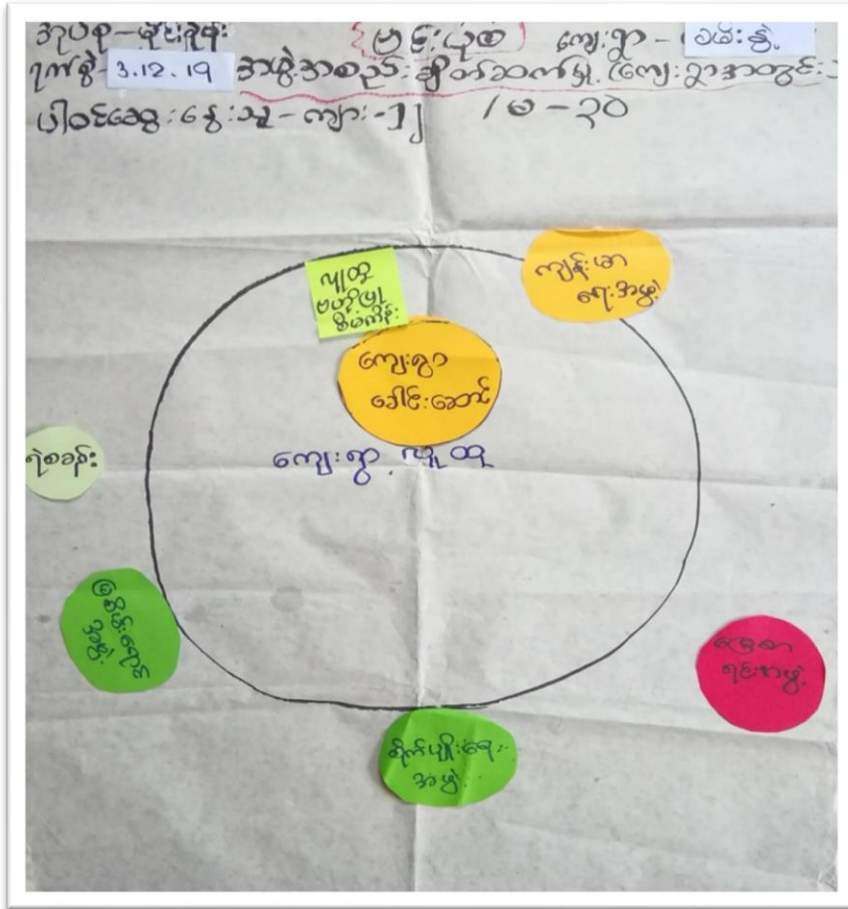 အုပ်စု-မိုင်းခုန်း {မြင်းယုစာ} ကျေးရွာ -
ရက်စွဲ- 3.12.19 အဖွဲ့အစည်းချိတ်ဆက်မှု (ကျေးရွာအတွင်း
ပါဝင်ဆွေးနွေးသူ - ကျား - ၂၂ / မ - ၃၀
လူထု
ဗဟိုပြု
စီမံကိန်း
ကျန်းမာ
ရေးအဖွဲ့
ကျေးရွာ
ခေါင်းဆောင်
ကျေးရွာ လူထု
ရဲစခန်း
စိမ်းရောင်
အဖွဲ့
မြေစာ
ရင်းအဖွဲ့
စိုက်ပျိုးရေး
အဖွဲ့